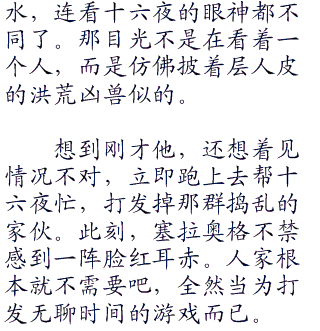 水，连看十六夜的眼神都不
同了。那目光不是在看着一
个人，而是仿佛披着层人皮
的洪荒凶兽似的。
想到刚才他，还想着见
情况不对，立即跑上去帮十
六夜忙，打发掉那群捣乱的
家伙。此刻，塞拉奥格不禁
感到一阵脸红耳赤。人家根
本就不需要吧，全然当为打
发无聊时间的游戏而已。